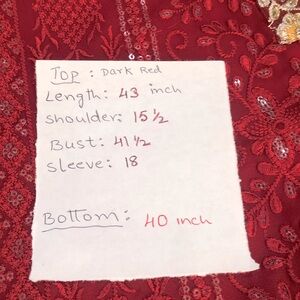 Top : Dark Red
Length: 43 inch
Shoulder: 15 1/2
Bust: 41 1/2
Sleeve: 18
Bottom: 40 inch